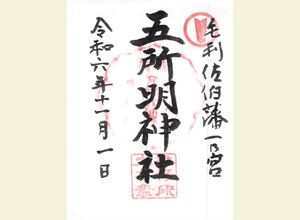 毛利佐伯藩一乃宮
五所明神社
令和六年十一月一日